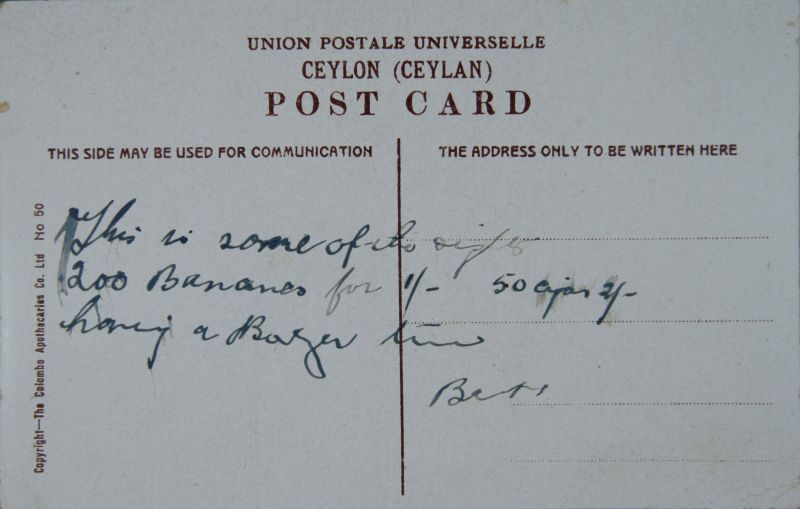 UNION POSTALE UNIVERSELLE
CEYLON (CEYLAN)
POST CARD
THIS SIDE MAY BE USED FOR COMMUNICATION
THE ADDRESS ONLY TO BE WRITTEN HERE
Copyright—The Colombo Apothecaries Co. Ltd No 50
This is some of its
200 Bananas for 1/- 50 2/-
having a time